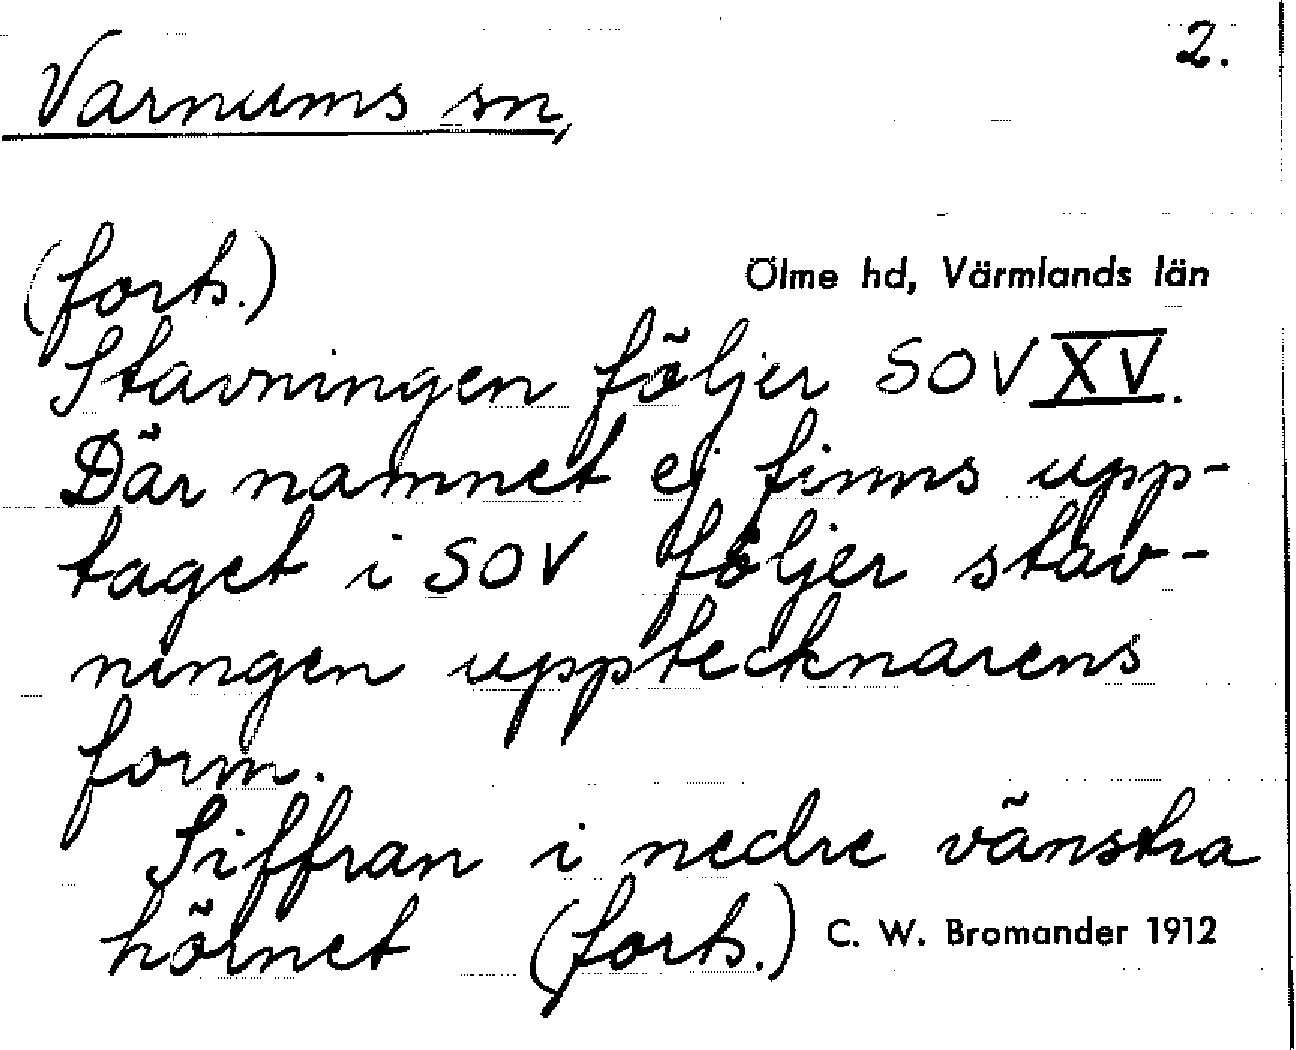 2.
Varnums sn,
(forts.)
Ölme hd, Värmlands län
Stavningen följer SOV XV.
Där namnet ej finns upp-
taget i SOV följer stav-
ningen upptecknarens
form.
Siffran i nedre vänstra
hörnet (forts.)
C. W. Bromander 1912